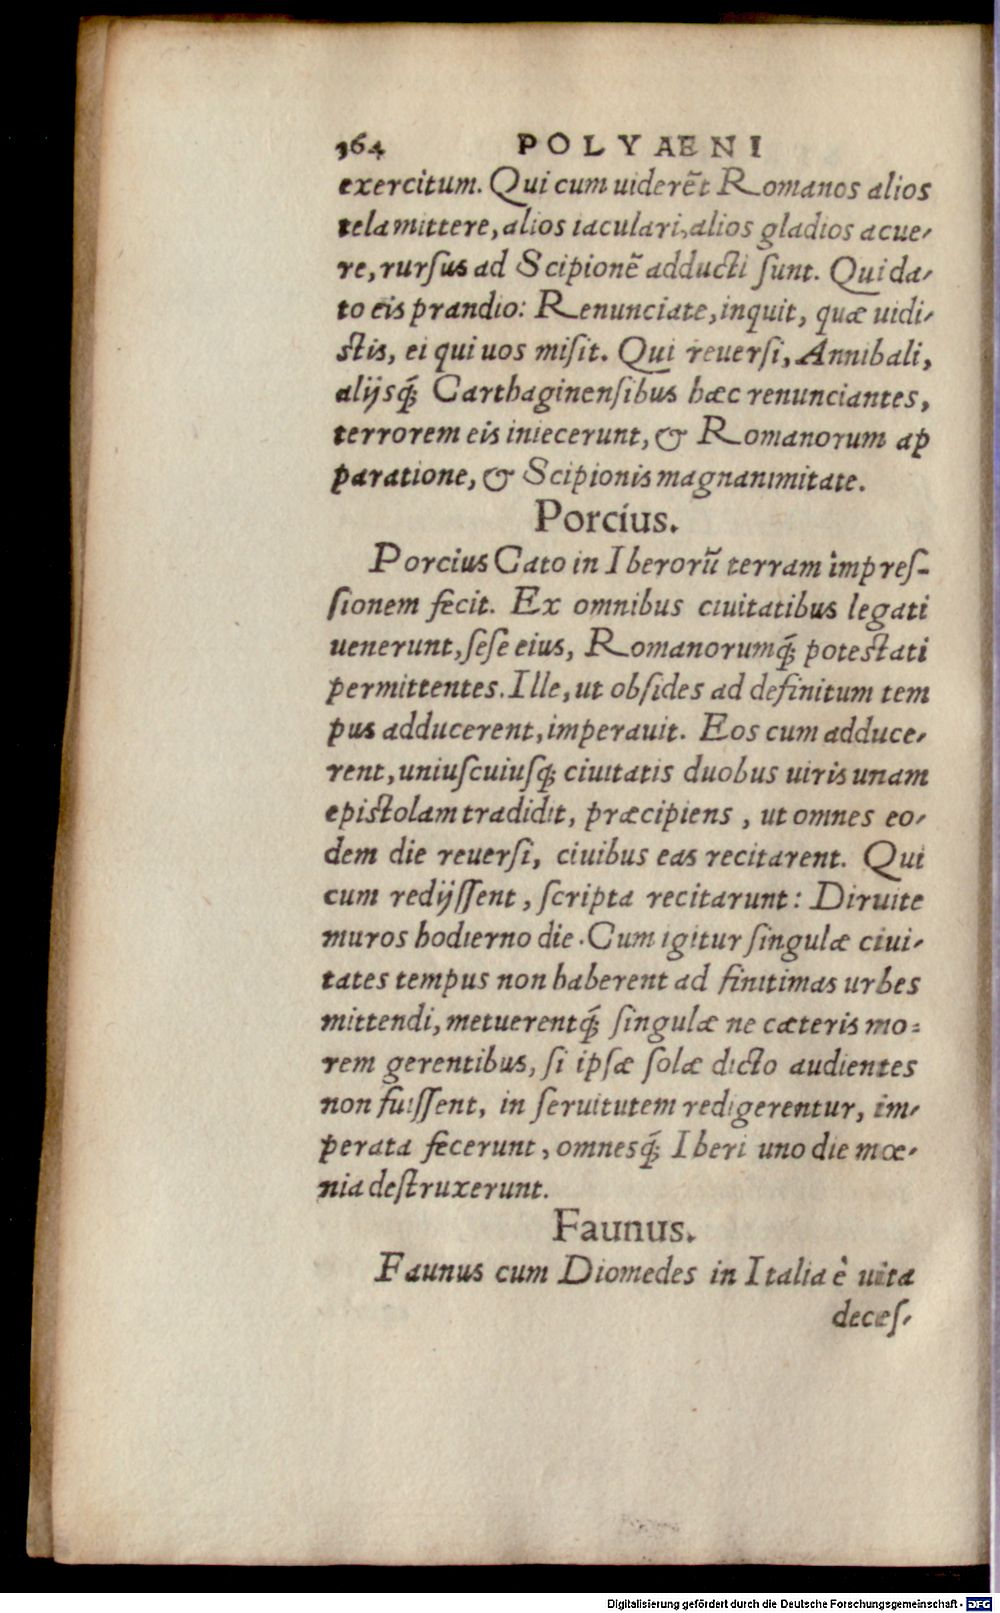 364 POLYAENI
exercitum. Qui cum uiderēt Romanos alios
tela mittere, alios iaculari, alios gladios acue-
re, rursus ad Scipionē adducti sunt. Qui da-
to eis prandio: Renunciate, inquit, quæ uidi-
stis, ei qui uos misit. Qui reuersi, Annibali,
alijsq́; Carthaginensibus hæc renunciantes,
terrorem eis iniecerunt, & Romanorum ap
paratione, & Scipionis magnanimitate.
Porcius.
Porcius Cato in Iberorū terram impres-
sionem fecit. Ex omnibus ciuitatibus legati
uenerunt, sese eius, Romanorumq́; potestati
permittentes. Ille, ut obsides ad definitum tem
pus adducerent, imperauit. Eos cum adduce-
rent, uniuscuiusq; ciuitatis duobus uiris unam
epistolam tradidit, præcipiens, ut omnes eo-
dem die reuersi, ciuibus eas recitarent. Qui
cum redijssent, scripta recitarunt: Diruite
muros hodierno die. Cum igitur singulæ ciui-
tates tempus non haberent ad finitimas urbes
mittendi, metuerentq́; singulæ ne cæteris mo-
rem gerentibus, si ipsæ solæ dicto audientes
non fuissent, in seruitutem redigerentur, im-
perata fecerunt, omnesq́; Iberi uno die mœ-
nia destruxerunt.
Faunus.
Faunus cum Diomedes in Italia è uita
deces-
Digitalisierung gefördert durch die Deutsche Forschungsgemeinschaft - DFG